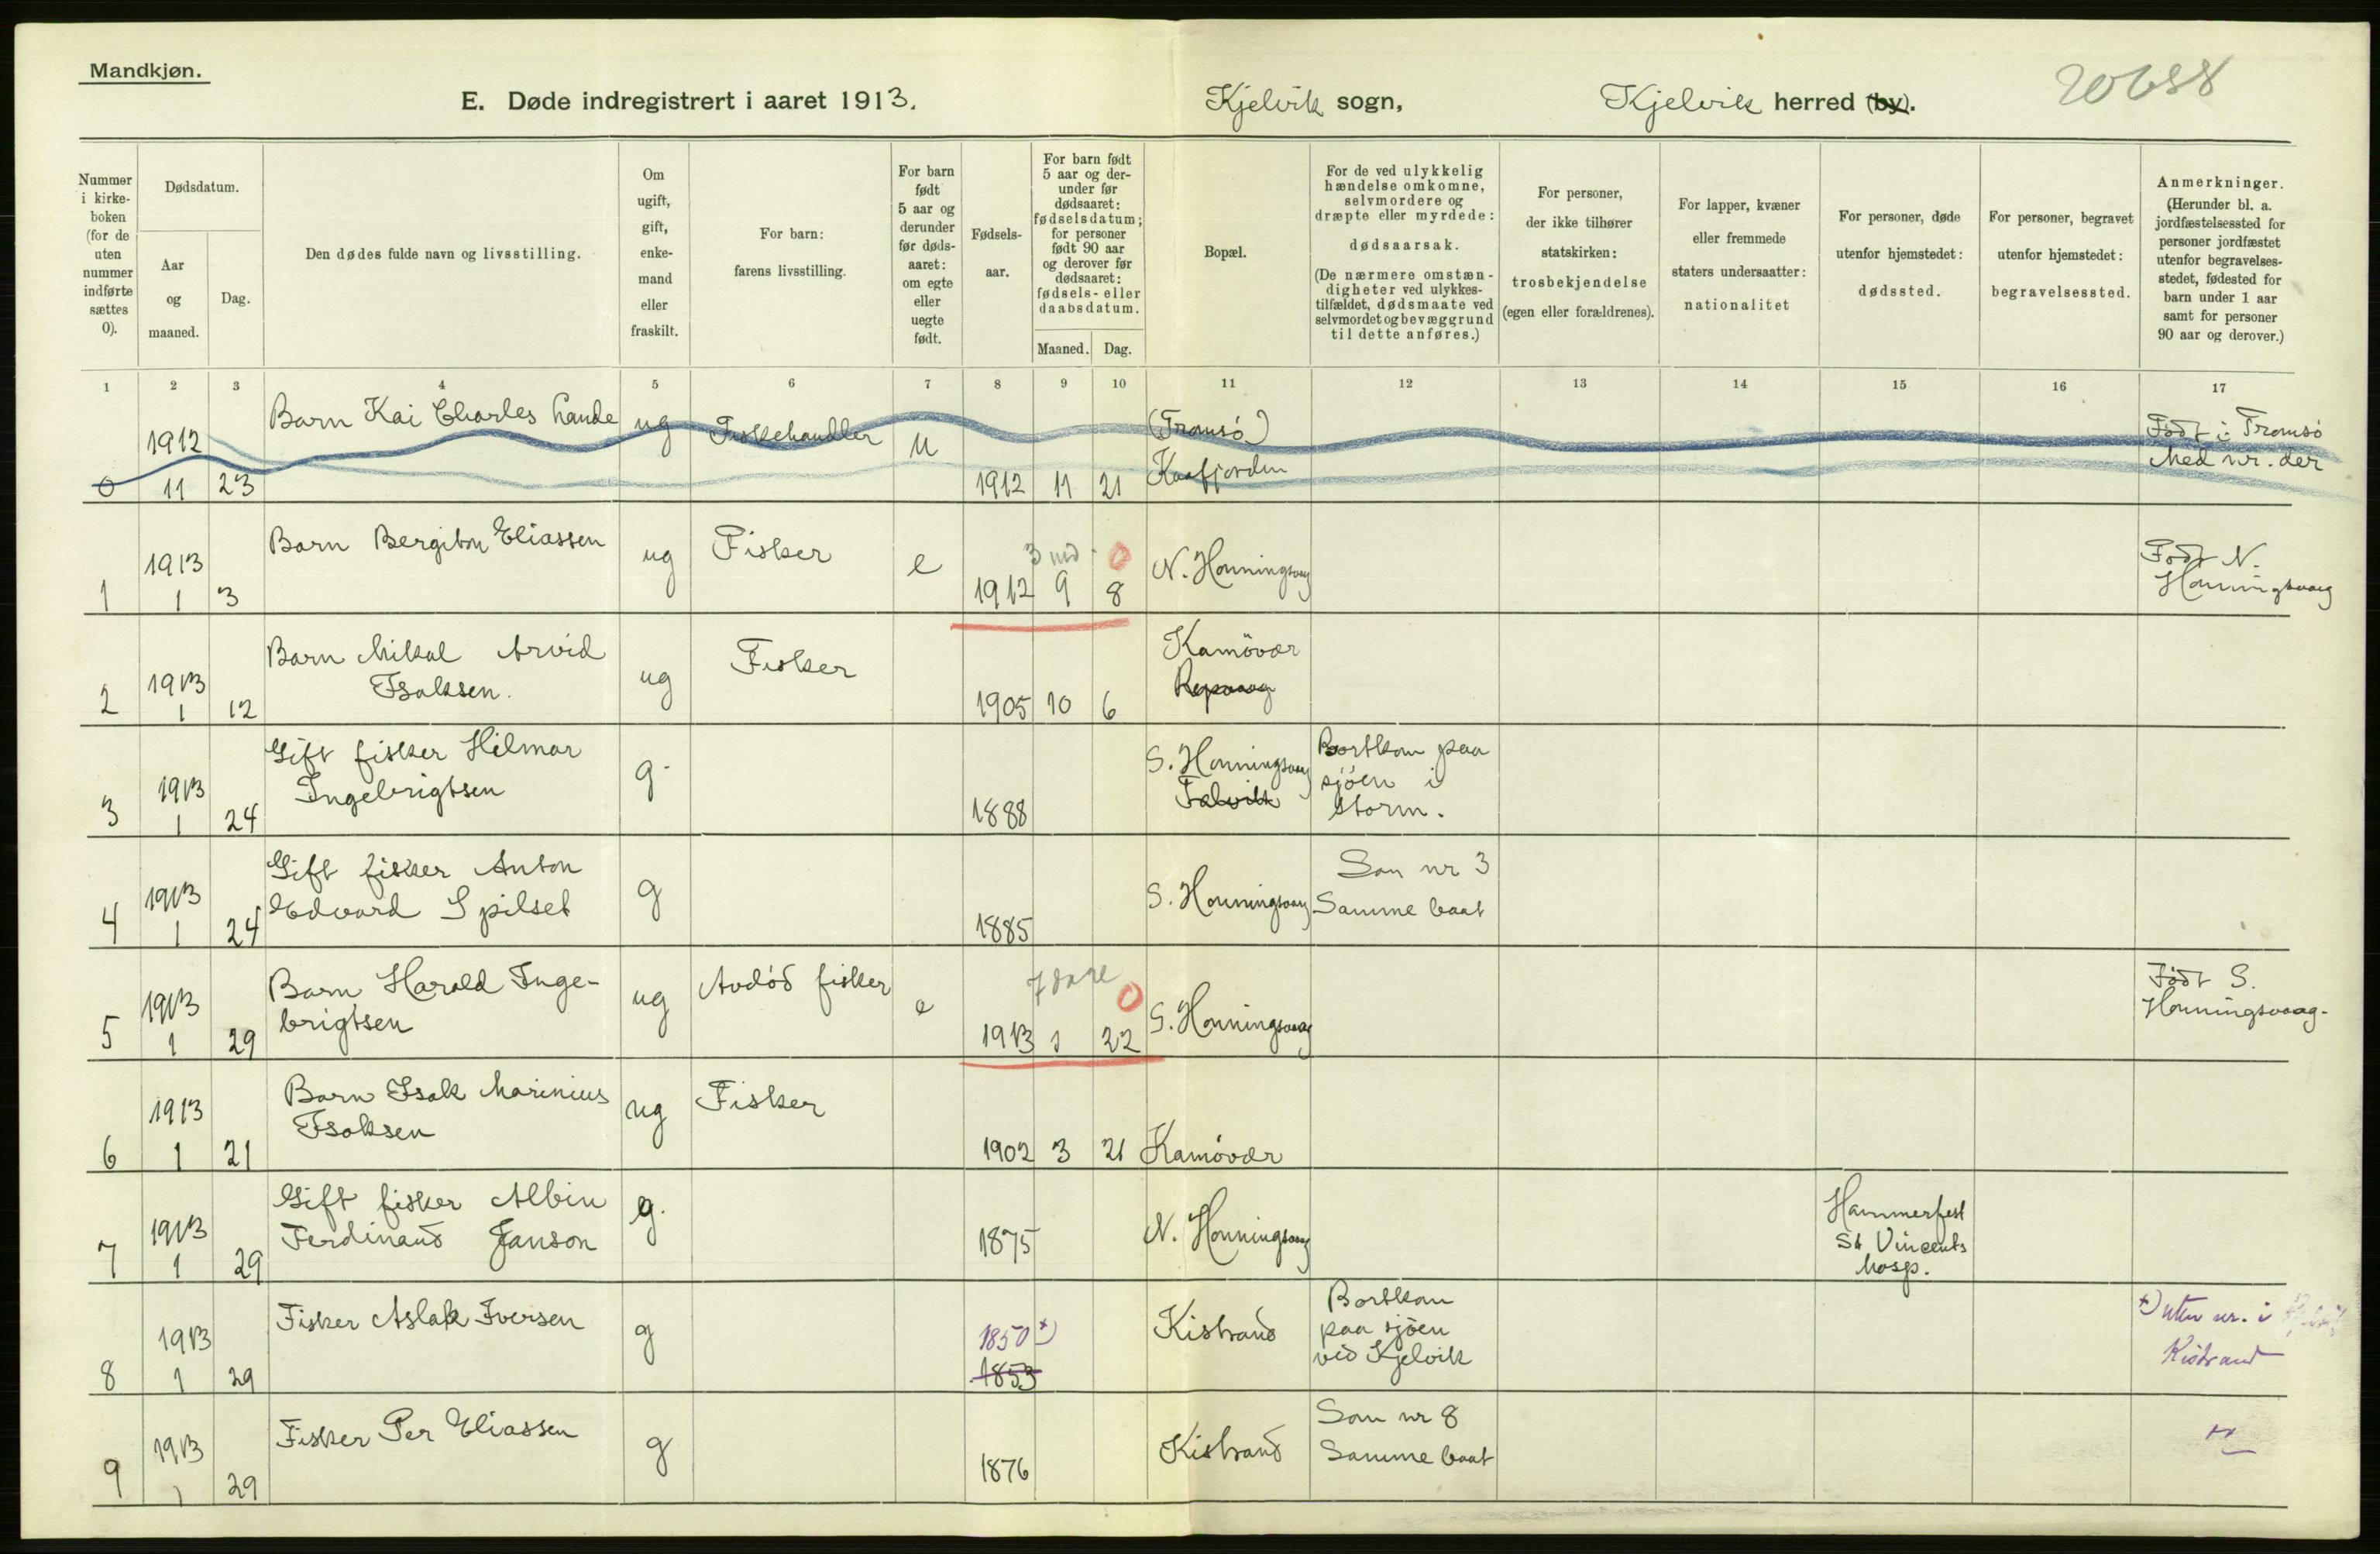 Mandkjøn.
E. Døde indregistrert i aaret 1913.
Kjelvik sogn,
Kjelvik herred (by).
20688
Nummer i kirke-boken (for de uten nummer indførte sættes 0).
Dødsdatum.
Aar og maaned.
Dag.
Den dødes fulde navn og livsstilling.
Om ugift, gift, enke-mand eller fraskilt.
For barn: farens livsstilling.
For barn født 5 aar og derunder før døds-aaret: om egte eller uegte født.
Fødsels-aar.
For barn født 5 aar og der-under før dødsaaret: fødselsdatum; for personer født 90 aar og derover før dødsaaret: fødsels- eller daabsdatum.
Maaned.
Dag.
Bopæl.
For de ved ulykkelig hændelse omkomne, selvmordere og dræpte eller myrdede: dødsaarsak. (De nærmere omstæn-digheter ved ulykkes-tilfældet, dødsmaate ved selvmordet og bevæggrund til dette anføres.)
For personer, der ikke tilhører statskirken: trosbekjendelse (egen eller forældrenes).
For lapper, kvæner eller fremmede staters undersaatter: nationalitet
For personer, døde utenfor hjemstedet: dødssted.
For personer, begravet utenfor hjemstedet: begravelsessted.
Anmerkninger. (Herunder bl. a. jordfæstelsessted for personer jordfæstet utenfor begravelses-stedet, fødested for barn under 1 aar samt for personer 90 aar og derover.)
1 2 3 4 5 6 7 8 9 10 11 12 13 14 15 16 17
0 1912 11 23 Barn Kai Charles Hande ug Fiskehandler u 1912 11 21 (Tromsó) Kaafjorden Fódt i Tromsó Med nr. der
1 1913 1 3 Barn Bergiton Eliassen ug Fisker e 3 md 0 1912 9 8 N. Honningsvaag Fódt N. Honningsvaag
2 1913 1 12 Barn Mikal Arvid Isaksen. ug Fisker 1905 10 6 Kamövær Repvaag
3 1913 1 24 Gift fisker Hilmar Ingebrigtsen g. 1888 S. Honningsvaag Talvik Bortkom paa sjóen i storm.
4 1913 1 24 Gift fisker Anton Edvard Spilset g 1885 S. Honningsvaag Som nr 3 Samme baat
5 1913 1 29 Barn Harald Inge-brigtsen ug Avdód fisker e 7 dage 0 1913 1 22 S. Honningsvaag Fódt S. Honningsvaag.
6 1913 1 21 Barn Isak Marinius Isaksen ug Fisker 1902 3 21 Kamóvær
7 1913 1 29 Gift fisker Albin Ferdinand Janson g. 1875 N. Honningsvaag Hammerfest St Vincents hosp.
8 1913 1 29 Fisker Aslak Iversen g 1850 +) 1853 Kistrand Bortkom paa sjóen ved Kjelvik +) uten nr. i Kistrand
9 1913 1 29 Fisker Per Eliassen g 1876 Kistrand Som nr 8 Samme baat